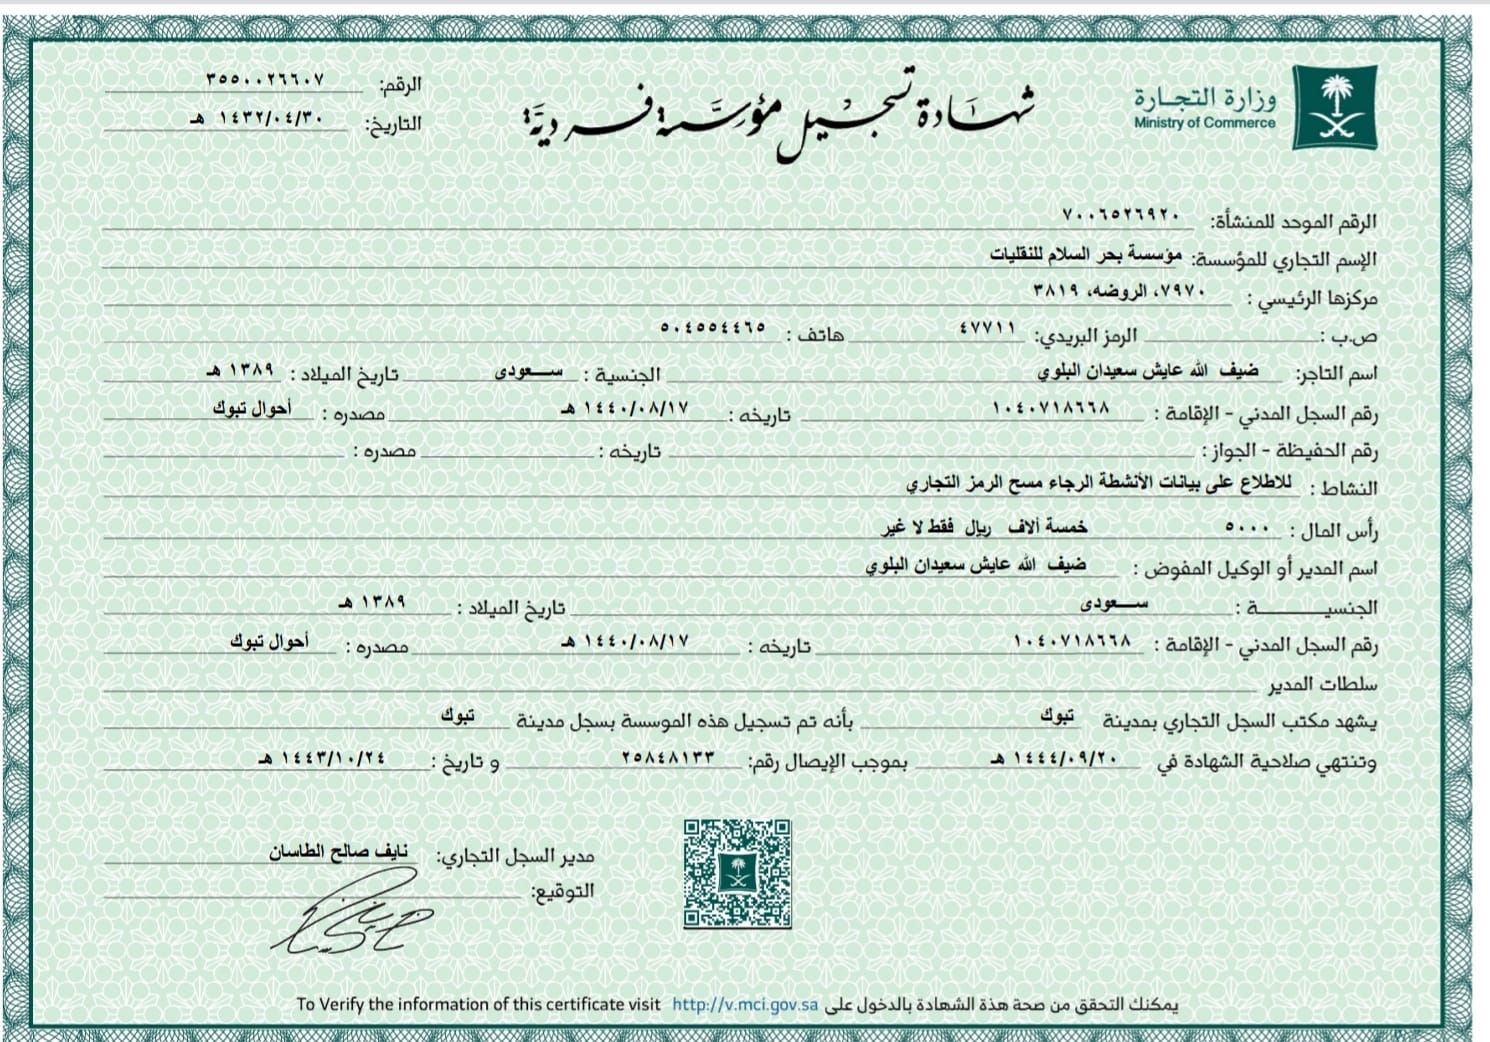 وزارة التجارة
Ministry of Commerce
شهادة تسجيل مؤسسة فردية
الرقم: ٣٥٥٠٠٢٦٦٠٧
التاريخ: ١٤٣٢/٠٤/٣٠ هـ
الرقم الموحد للمنشأة: ٧٠٠٦٥٢٦٩٢٠
الإسم التجاري للمؤسسة: مؤسسة بحر السلام للنقليات
مركزها الرئيسي : ٧٩٧٠، الروضه، ٣٨١٩
ص.ب : الرمز البريدي: ٤٧٧١١ هاتف : ٥٠٤٥٥٤٤٦٥
اسم التاجر: ضيف الله عايش سعيدان البلوي الجنسية : سعودى تاريخ الميلاد : ١٣٨٩ هـ
رقم السجل المدني - الإقامة : ١٠٤٠٧١٨٦٦٨ تاريخه : ١٤٤٠/٠٨/١٧ هـ مصدره : أحوال تبوك
رقم الحفيظة - الجواز : تاريخه : مصدره :
النشاط : للاطلاع على بيانات الأنشطة الرجاء مسح الرمز التجاري
رأس المال : ٥٠٠٠ خمسة ألاف ريال فقط لا غير
اسم المدير أو الوكيل المفوض : ضيف الله عايش سعيدان البلوي
الجنسيـــــــة : سعودى تاريخ الميلاد : ١٣٨٩ هـ
رقم السجل المدني - الإقامة : ١٠٤٠٧١٨٦٦٨ تاريخه : ١٤٤٠/٠٨/١٧ هـ مصدره : أحوال تبوك
سلطات المدير
يشهد مكتب السجل التجاري بمدينة تبوك بأنه تم تسجيل هذه الموسسة بسجل مدينة تبوك
وتنتهي صلاحية الشهادة في ١٤٤٤/٠٩/٢٠ هـ بموجب الإيصال رقم: ٢٥٨٤٨١٣٣ و تاريخ : ١٤٤٣/١٠/٢٤ هـ
مدير السجل التجاري: نايف صالح الطاسان
التوقيع:
يمكنك التحقق من صحة هذة الشهادة بالدخول على http://v.mci.gov.sa To Verify the information of this certificate visit